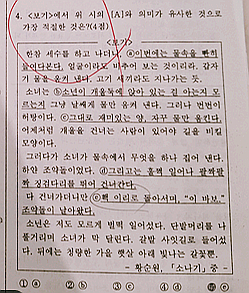 4. <보기>에서 위 시의 [A]와 의미가 유사한 것으로
가장 적절한 것은?(4점)
<보기>
한참 세수를 하고 나더니, ⓐ이번에는 물속을 빤히
들여다본다. 얼굴이라도 비추어 보는 것이리라. 갑자
기 물을 움켜 낸다. 고기 새끼라도 지나가는 듯.
소녀는 ⓑ소년이 개울둑에 앉아 있는 걸 아는지 모
르는지 그냥 날쌔게 물만 움켜 낸다. 그러나 번번이
허탕이다. ⓒ그대로 재미있는 양, 자꾸 물만 움킨다.
어제처럼 개울을 건너는 사람이 있어야 길을 비킬
모양이다.
그러다가 소녀가 물속에서 무엇을 하나 집어 낸다.
하얀 조약돌이었다. ⓓ그리고는 훌쩍 일어나 팔짝팔
짝 징검다리를 뛰어 건너간다.
다 건너가더니만 ⓔ홱 이리로 돌아서며, "이 바보."
조약돌이 날아왔다.
소년은 저도 모르게 벌떡 일어섰다. 단발머리를 나
풀거리며 소녀가 막 달린다. 갈밭 사잇길로 들어섰
다. 뒤에는 청량한 가을 햇살 아래 빛나는 갈꽃뿐.
- 황순원, 「소나기」 중 -
① ⓐ ② ⓑ ③ ⓒ ④ ⓓ ⑤ ⓔ